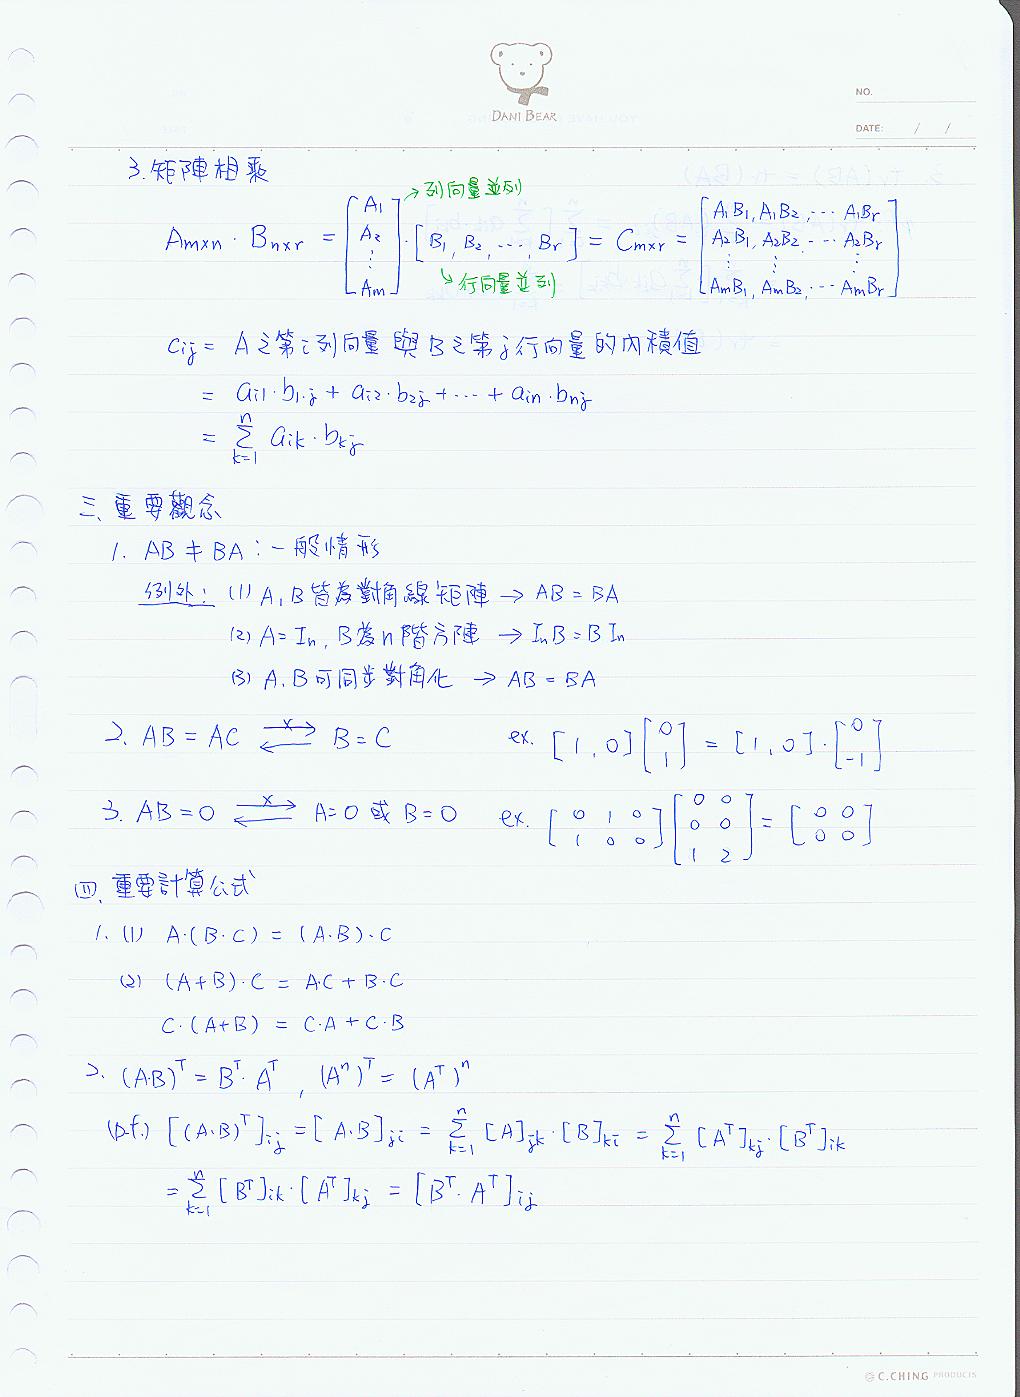 DANI BEAR
NO.
DATE: / /
3.矩陣相乘
Am×n · Bn×r = [A1 A2 ⋮ Am] · [B1, B2, ⋯, Br] = Cm×r = [A1B1, A1B2, ⋯ A1Br A2B1, A2B2 ⋯ A2Br ⋮ ⋮ ⋮ AmB1, AmB2, ⋯ AmBr]
→列向量並列
↳行向量並列
cij = A之第i列向量與B之第j行向量的內積值
= ai1·b1j + ai2·b2j + ⋯ + ain·bnj
= Σ_{k=1}^{n} aik·bkj
三、重要觀念
1. AB ≠ BA：一般情形
例外： (1) A, B皆為對角線矩陣 → AB = BA
(2) A = In, B為n階方陣 → InB = BIn
(3) A, B可同步對角化 → AB = BA
2. AB = AC ⇄(×) B = C ex. [1, 0][0 1] = [1, 0]·[0 -1]
3. AB = 0 ⇄(×) A=0 或 B=0 ex. [0 1 0 1 0 0][0 0 0 0 1 2] = [0 0 0 0]
四、重要計算公式
1. (1) A·(B·C) = (A·B)·C
(2) (A+B)·C = A·C + B·C
C·(A+B) = C·A + C·B
2. (A·B)^T = B^T·A^T, (A^n)^T = (A^T)^n
(p.f.) [(A·B)^T]ij = [A·B]ji = Σ_{k=1}^{n} [A]jk·[B]ki = Σ_{k=1}^{n} [A^T]kj·[B^T]ik
= Σ_{k=1}^{n} [B^T]ik·[A^T]kj = [B^T·A^T]ij
C.CHING PRODUCTS